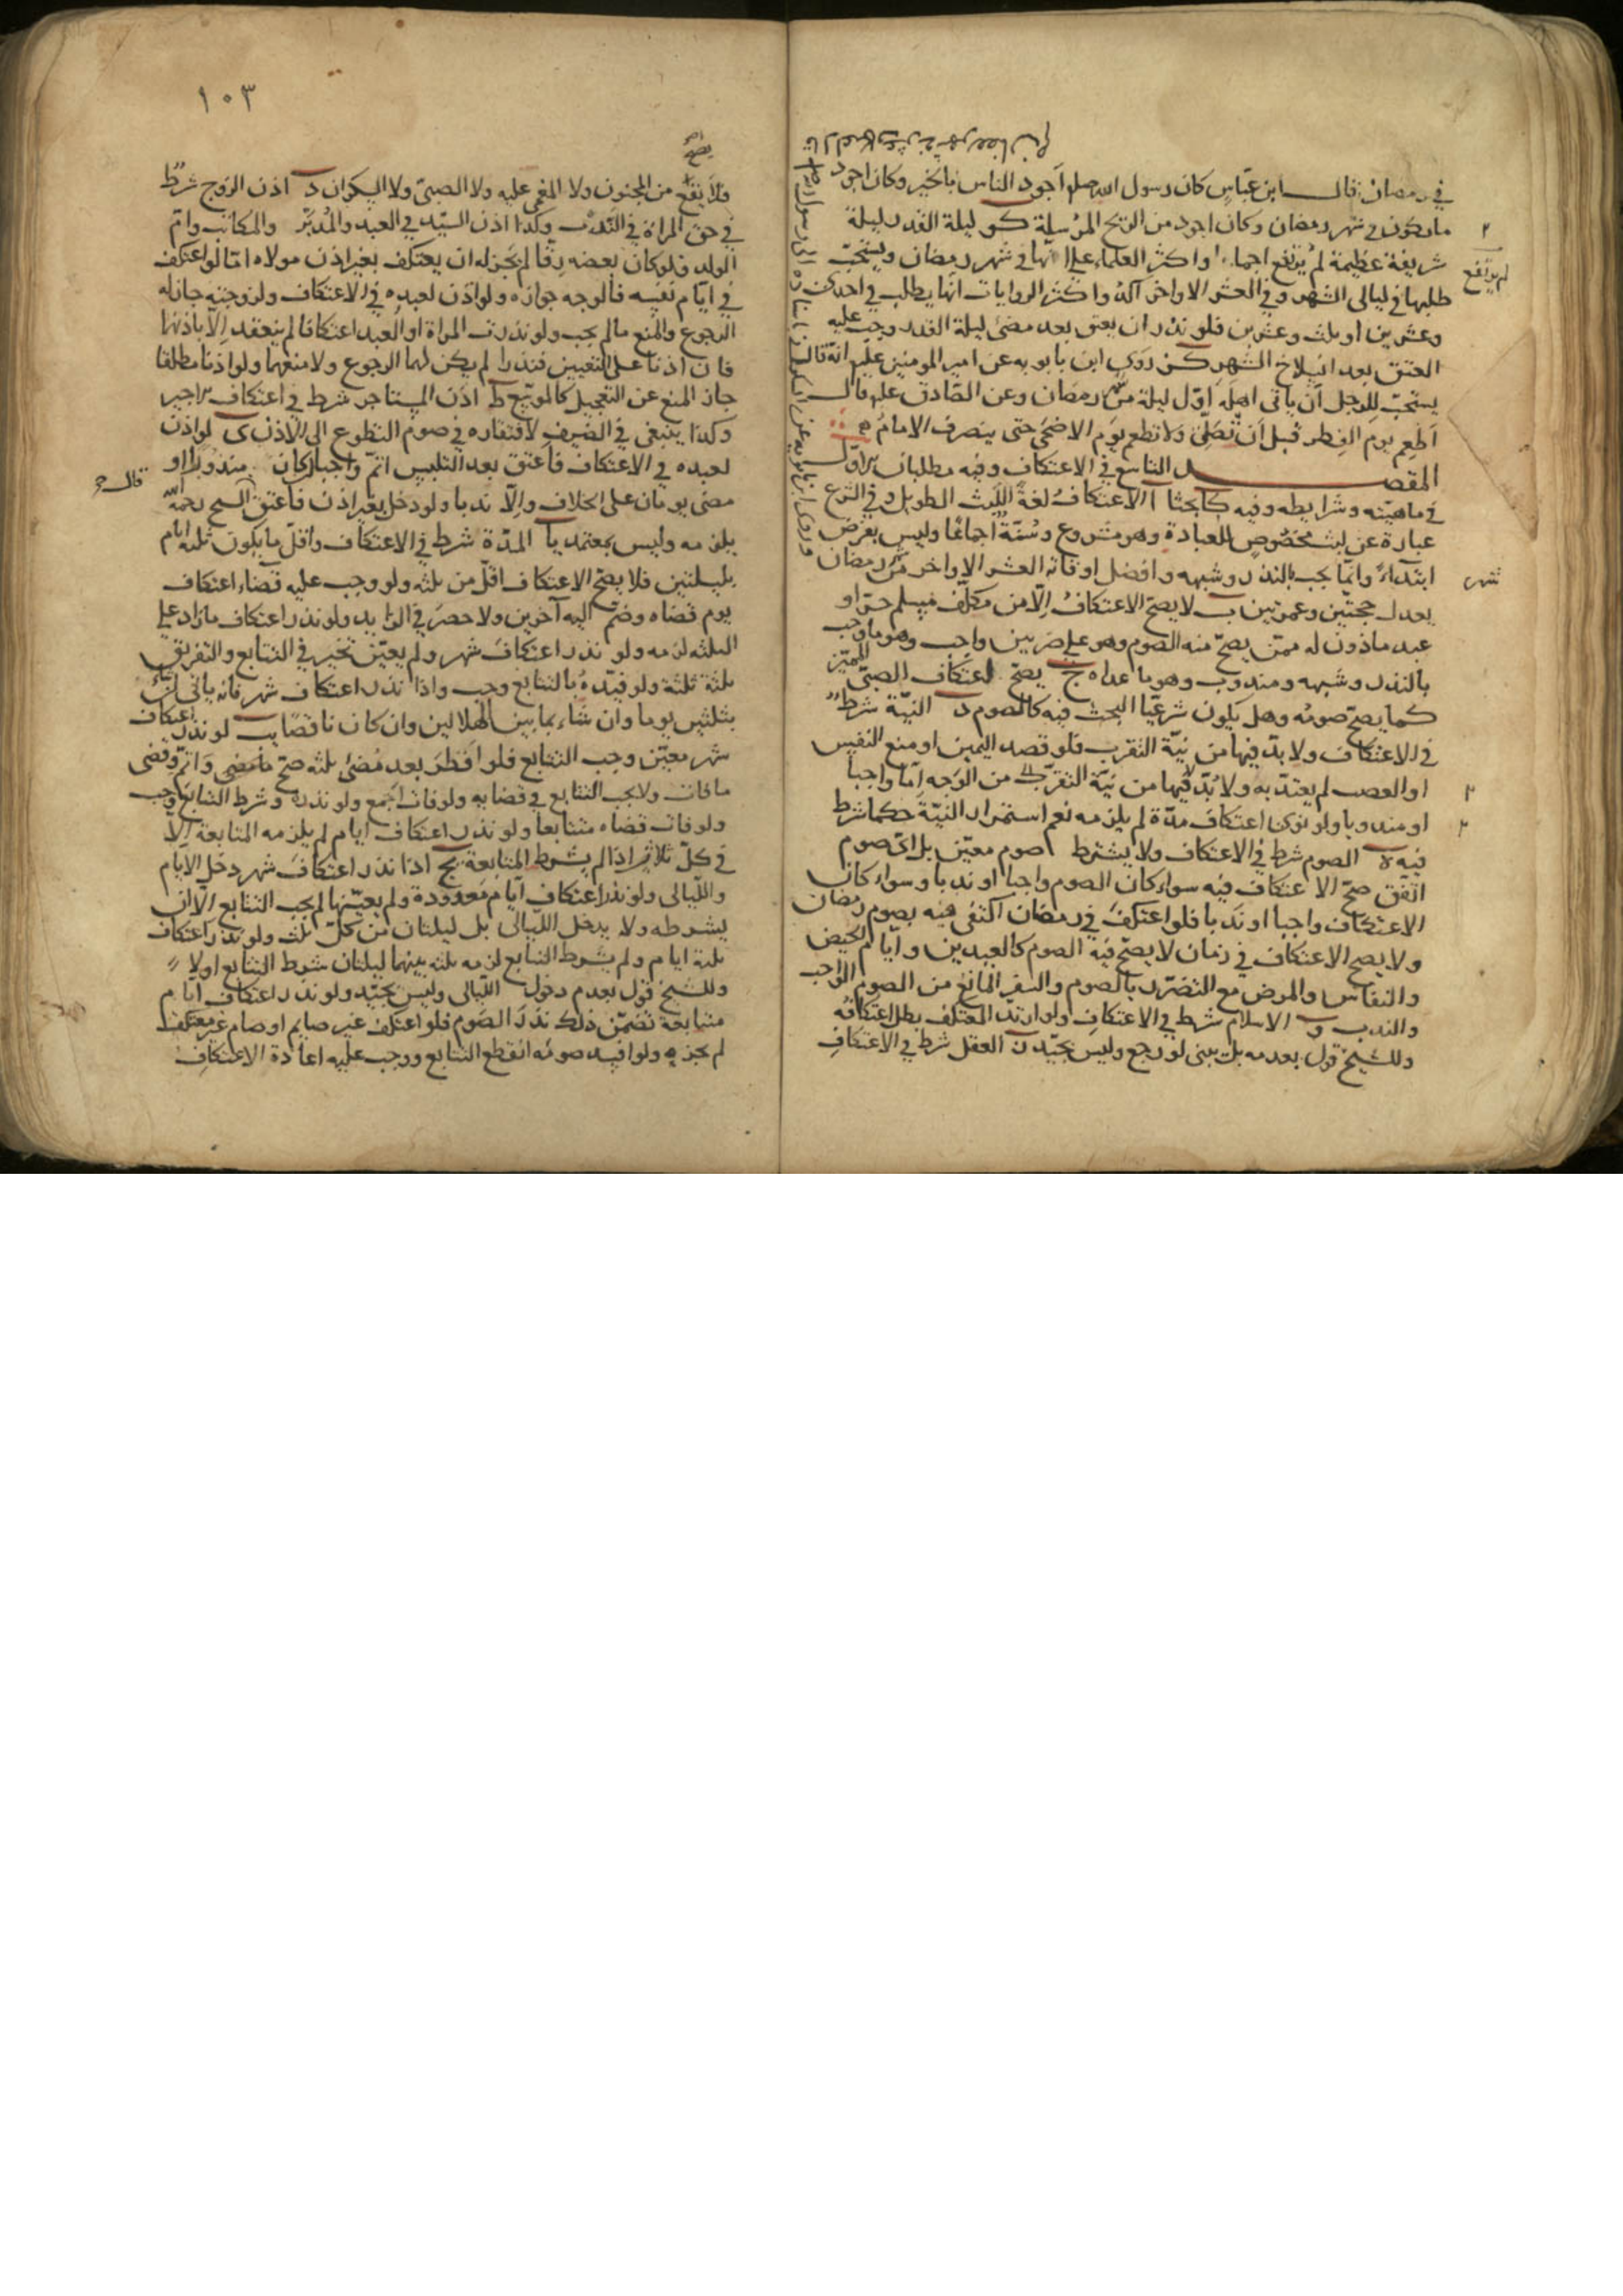 في رمضان قال ابن عباس كان رسول الله صلم اجود الناس بالخير وكان اجود
ما يكون في شهر رمضان وكان اجود من الريح المرسلة كو ليلة القدر ليلة
شريفة عظيمة لم يرتفع اجماعا واكثر العلماء على انها في شهر رمضان ويستحب
لم يرتفع
طلبها في ليالي الشهر وفي العشر الاواخر آكد واكثر الروايات انها يطلب في احدى
وعشرين او ثلث وعشرين فلو نذر ان يعتق بعد مضى ليلة القدر وجب عليه
العتق بعد انسلاخ الشهر كز روى ابن بابويه عن امير المومنين علم انه قال
يستحب للرجل ان ياتى اهله اول ليلة من رمضان وعن الصادق علم قال
اطعم يوم الفطر قبل ان تصلى ولا تطعم يوم الاضحى حتى ينصرف الامام
المقصد التاسع في الاعتكاف وفيه مطلبان الاول
في ماهيته وشرايطه وفيه كا بحثا ا الاعتكاف لغة اللبث الطويل وفي الشرع
عبارة عن لبث مخصوص للعبادة وهو مشروع وسنة اجماعا وليس بفرض
ابتداء وانما يجب بالنذر وشبهه وافضل اوقاته العشر الاواخر من رمضان
شهر
يعدل حجتين وعمرتين ب لا يصح الاعتكاف الا من مكلف مسلم حر او
عبد ماذون له ممن يصح منه الصوم وهو على ضربين واجب وهو ما وجب
بالنذر وشبهه ومندوب وهو ما عداه ج يصح اعتكاف الصبى المميز
كما يصح صومه وهل يكون شرعيا البحث فيه كالصوم د النية شرط
في الاعتكاف ولا بد فيها من نية التقرب فلو قصد اليمين او منع النفس
او الغضب لم يعتد به ولا بد فيها من نية التقرب من الوجه اما واجبا
او مندوبا ولو نوى اعتكاف مدة لم يلزمه نعم استمرار النية حكما شرط
فيه ه الصوم شرط في الاعتكاف ولا يشترط صوم معين بل اى صوم
اتفق صح الاعتكاف فيه سواء كان الصوم واجبا او ندبا وسواء كان
الاعتكاف واجبا او ندبا فلو اعتكف في رمضان اكتفى فيه بصوم رمضان
ولا يصح الاعتكاف في زمان لا يصح فيه الصوم كالعيدين وايام الحيض
والنفاس والمرض مع التضرر بالصوم والسفر المانع من الصوم الواجب
والندب و الاسلام شرط في الاعتكاف ولو ارتد المعتكف بطل اعتكافه
وللشيخ قول بعدمه بل يبنى لو رجع وليس بجيد ز العقل شرط في الاعتكاف
١٠٣
فلا يقع من المجنون ولا المغمى عليه ولا الصبى ولا السكران اذن الزوج شرط
في حق المراة في الندب وكذا اذن السيد في العبد والمدبر والمكاتب وام
الولد ولو كان بعضه رقا لم يجز له ان يعتكف بغير اذن مولاه اما لو اعتكف
في ايام نفسه فالوجه جوازه ولو اذن لعبده في الاعتكاف ولزوجته جاز له
الرجوع والمنع ما لم يجب ولو نذرت المراة او العبد اعتكافا لم ينعقد الا باذنهما
فان اذنا على التعيين فنذرا لم يكن لهما الرجوع ولا منعهما ولو اذنا مطلقا
جاز المنع عن التعجيل كالموسع ط اذن المستاجر شرط في اعتكاف الاجير
وكذا ينبغي في الضيف لافتقاره في صوم التطوع الى الاذن ى لو اذن
لعبده في الاعتكاف فاعتق بعد التلبس اتم واجبا ان كان مندوبا او
مضى يومان على الخلاف والا ندبا ولو دخل بغير اذن فاعتق الشيخ رحمه
قال
يلزمه وليس بمعتمد يا المدة شرط في الاعتكاف واقل ما يكون ثلثة ايام
بليلتين فلا يصح الاعتكاف اقل من ثلثة ولو وجب عليه قضاء اعتكاف
يوم قضاه وضم اليه آخرين ولا حصر في الزايد ولو نذر اعتكاف ما زاد على
الثلثة لزمه ولو نذر اعتكاف شهر ولم يعين تخير في التتابع والتفريق
ثلثة ثلثة ولو قيده بالتتابع وجب واذا نذر اعتكاف شهر فانه ياتى
بثلثين يوما وان شاء بما بين الهلالين وان كان ناقصا يب لو نذر اعتكاف
شهر معين وجب التتابع فلو افطر بعد مضى ثلثة صح ما مضى واتم وقضى
ما فات ولا يجب التتابع في قضايه ولو فات اجمع ولو نذره وشرط التتابع وجب
ولو فات قضاه متتابعا ولو نذر اعتكاف ايام لم يلزمه المتابعة الا
في كل ثلاثة اذا لم يشترط المتابعة يج اذا نذر اعتكاف شهر دخل الايام
والليالى ولو نذر اعتكاف ايام معدودة ولم يعينها لم يجب التتابع الا ان
يشرطه ولا يدخل الليالى بل ليلتان من كل ثلث ولو نذر اعتكاف
ثلثة ايام ولم يشرط التتابع لزمه ثلثة بينها ليلتان شرط التتابع اولا
وللشيخ قول بعدم دخول الليالى وليس بجيد ولو نذر اعتكاف ايام
متتابعة تضمن ذلك نذر الصوم فلو اعتكف غير صايم او صام غير معتكف
لم يجزه ولو افسد صومه انقطع التتابع ووجب عليه اعادة الاعتكاف